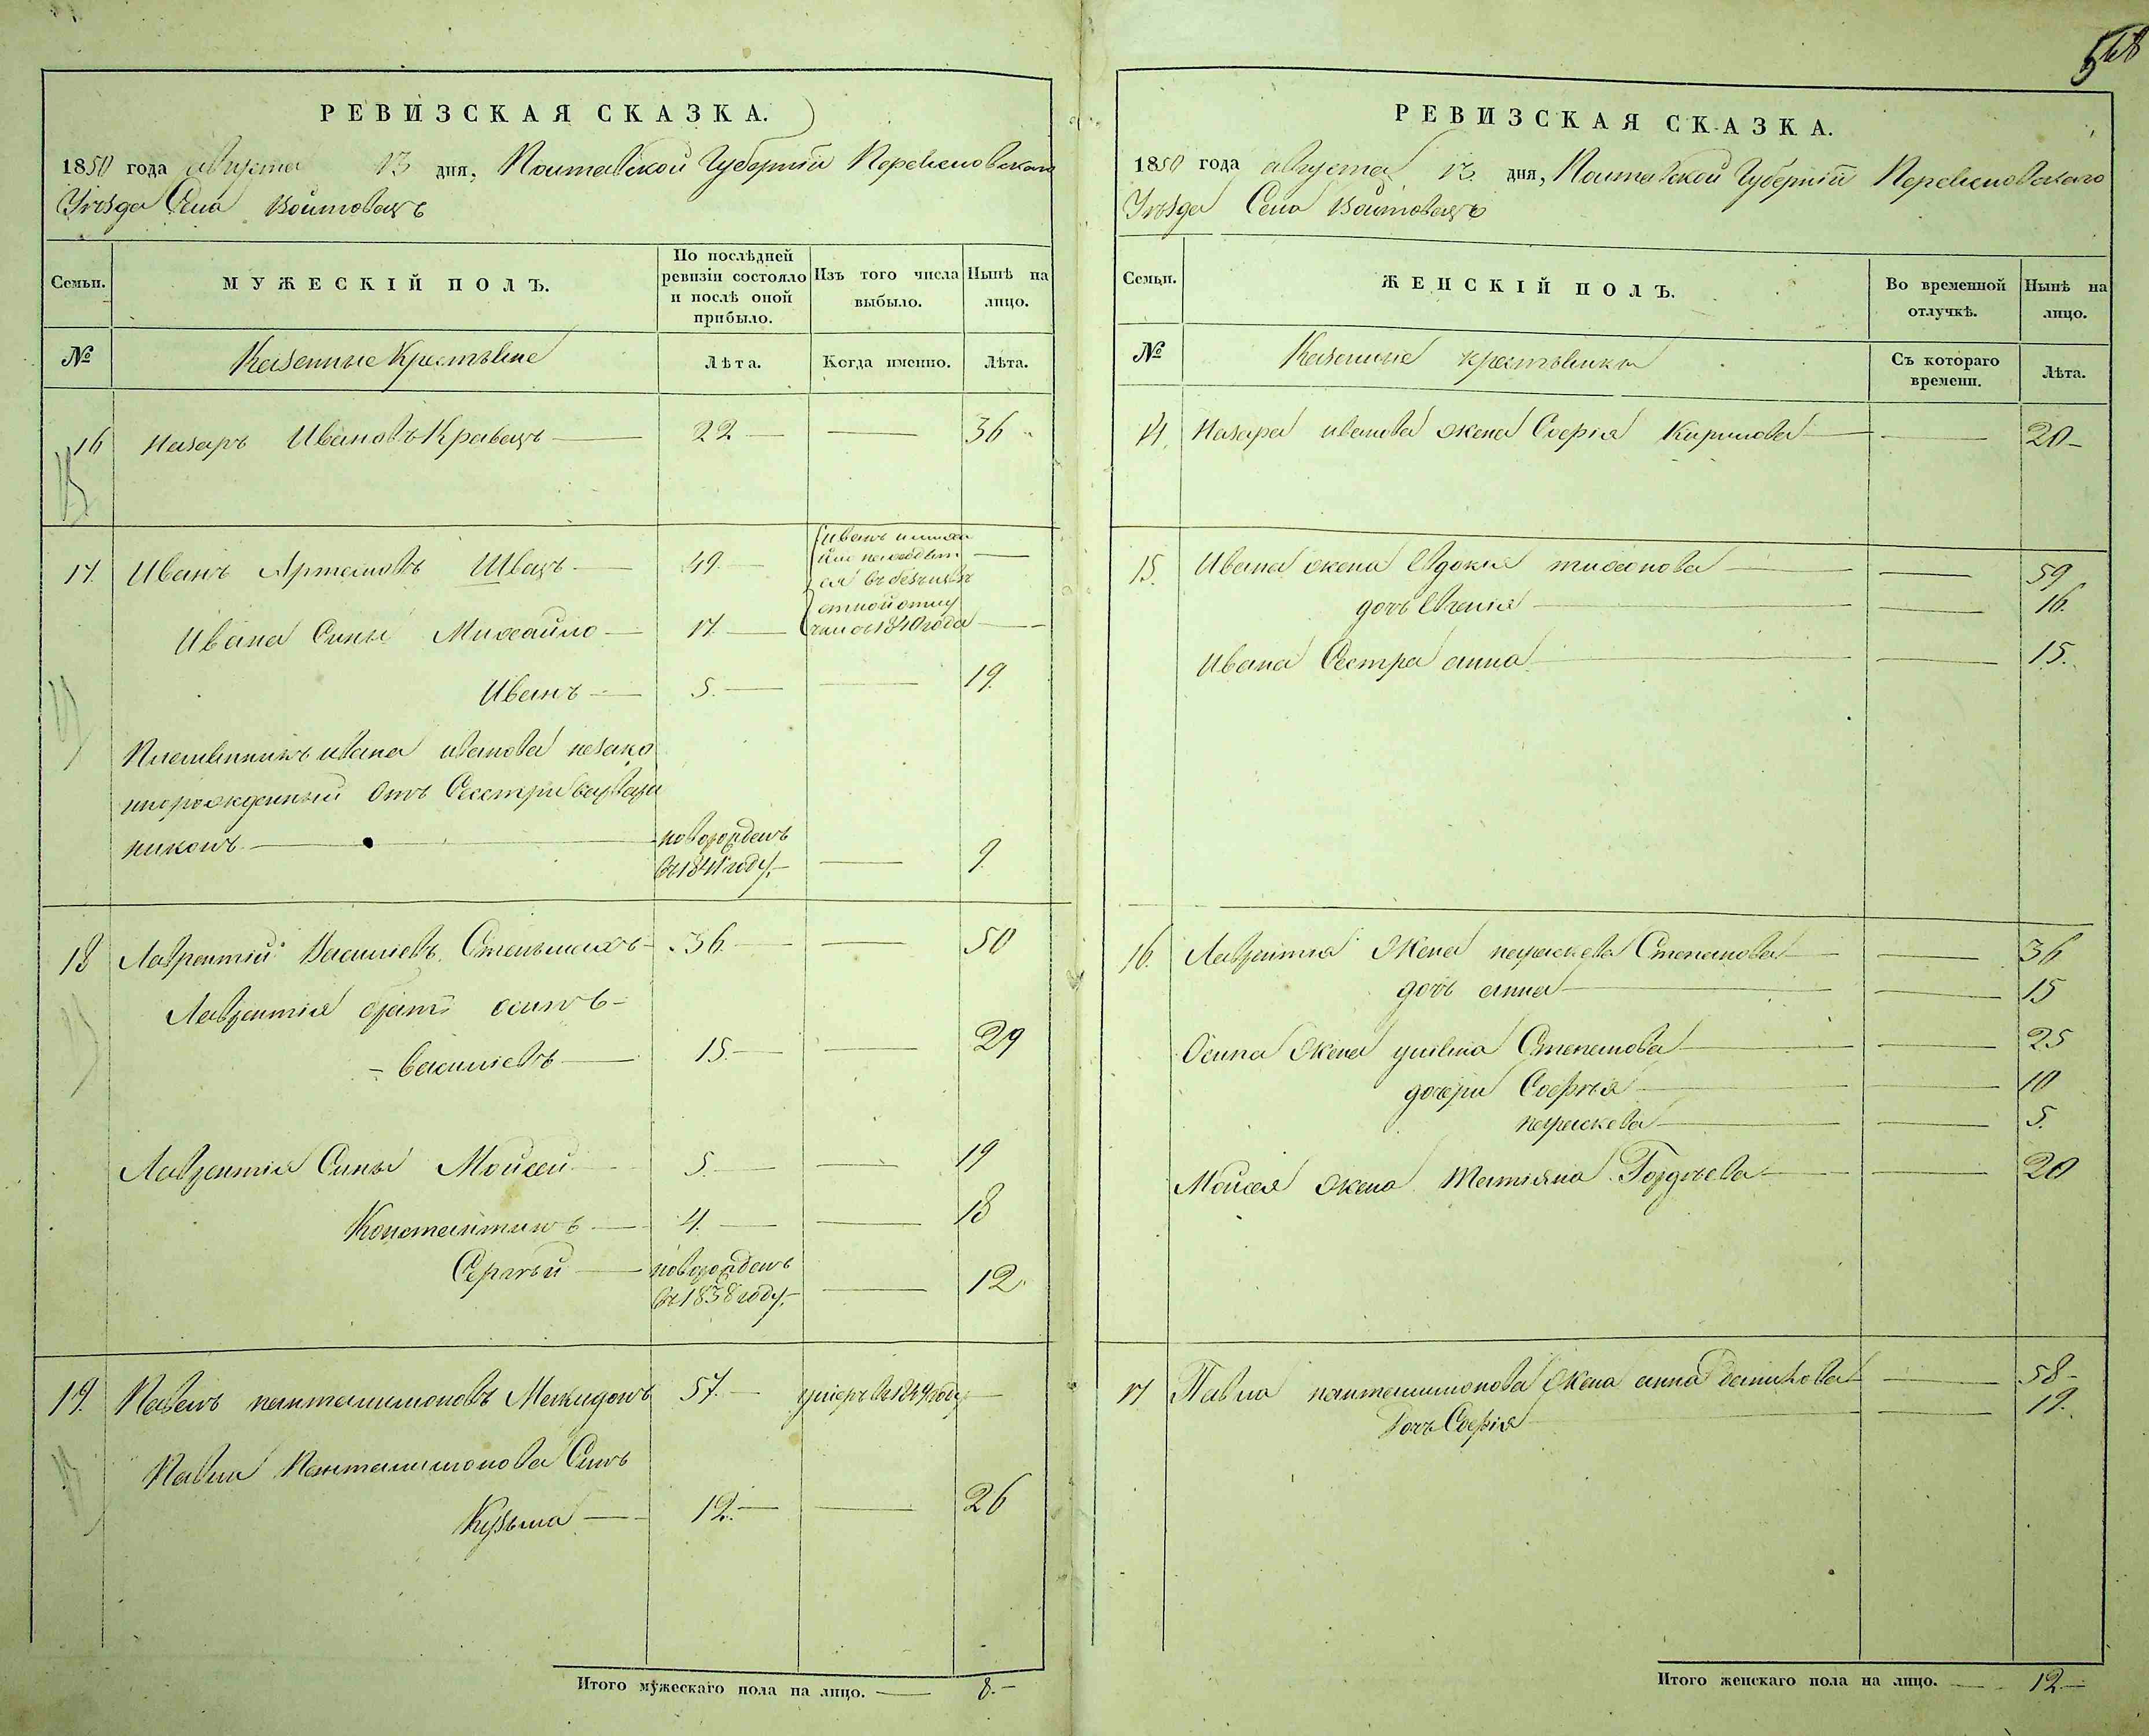 568
РЕВИЗСКАЯ СКАЗКА.
1850 года августа 13 дня, Полтавской Губерніи Переяславскаго
Уезда Села Войтовецъ
Семьи.
МУЖЕСКІЙ ПОЛЪ.
По послѣдней ревизіи состояло и послѣ оной прибыло.
Изъ того числа выбыло.
Нынѣ на лицо.
№
Казенные Крестьяне
Лѣта.
Когда именно.
Лѣта.
16 Назаръ Ивановъ Кравецъ — 22 — — 36
17. Иванъ Артемовъ Швецъ — 49 — Иванъ и миха
илъ находят —
ся въ безизвѣ
стной отлу
чки съ 1840 года —
Ивана Сины Михайло — 17. —
Иванъ — 5. — — 19.
Племянникъ ивана иванова незако
ннорожденный отъ Сестри
никонъ — новорожденъ
въ 1841 году. — — 9.
18 Лаврентій Василіевъ Стельмахъ — 36 — — 50
Лаврентія братъ осипъ —
– Василіевъ — 15. — — 29
Лаврентія Сины Мойсей 5. — — 19
Константинъ — 4. — — 18
Сергѣй — новорожденъ
въ 1838 году. — — 12
19. Павелъ панталимоновъ 57. — умеръ въ 1849 году —
Павла Панталимонова Синъ
Кузьма — 12. — — 26
Итого мужескаго пола на лицо. — 8. –
РЕВИЗСКАЯ СКАЗКА.
1850 года августа 13 дня, Полтавской Губерніи Переяславскаго
Уезда Села Войтовецъ
Семьи.
ЖЕНСКІЙ ПОЛЪ.
Во временной отлучкѣ.
Нынѣ на лицо.
№
Казенные крестьянки
Съ котораго времени.
Лѣта.
14. Назара иванова жена Софія Кирилова — — 20 –
15. Ивана жена Евдокія тихонова — — 59
дочь Евгенія — — 16.
Ивана Сестра анна — — 15.
16. Лаврентія Жена параскева Степанова — — 36
дочь анна — — 15
Осипа Жена уліяна Степанова — — 25
дочери Софія — — 10
параскева — — 5.
Мойсея жена Татіяна Гордѣева — — 20
17 Павла панталимонова Жена анна данилова — — 58 –
Дочь Софія — — 19.
Итого женскаго пола на лицо. — 12 —